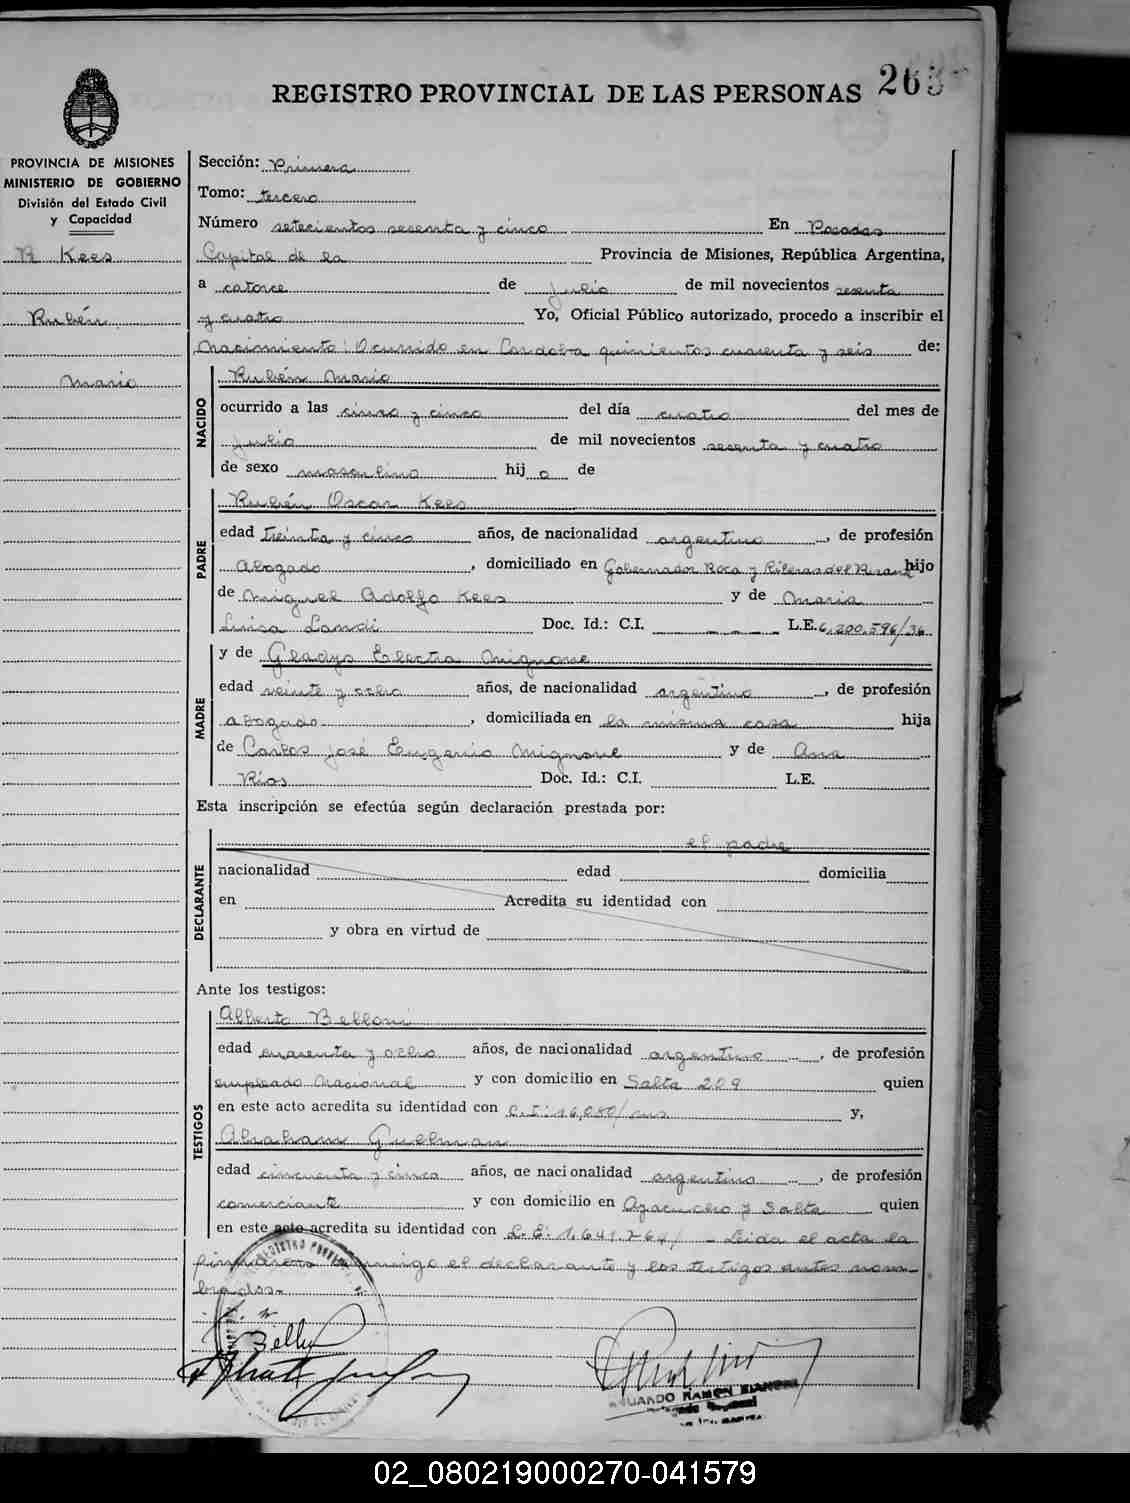 REGISTRO PROVINCIAL DE LAS PERSONAS 263
PROVINCIA DE MISIONES
MINISTERIO DE GOBIERNO
División del Estado Civil
y Capacidad
Kees
Rubén
Mario
Sección: Primera
Tomo: tercero
Número setecientos sesenta y cinco En Posadas
Capital de la Provincia de Misiones, República Argentina,
a catorce de Julio de mil novecientos sesenta
y cuatro Yo, Oficial Público autorizado, procedo a inscribir el
nacimiento: Ocurrido en Cordoba quinientos cuarenta y seis de:
NACIDO
Rubén Mario
ocurrido a las cinco y cinco del día cuatro del mes de
Julio de mil novecientos sesenta y cuatro
de sexo masculino hijo de
PADRE
Rubén Oscar Kees
edad treinta y cinco años, de nacionalidad argentino, de profesión
Abogado, domiciliado en Gobernador Roca y Riberas del Paraná hijo
de Miguel Adolfo Kees y de Maria
Luisa Landi Doc. Id.: C.I. - - - L.E. 6.200.596/36
MADRE
y de Gladys Electra Mignone
edad veinte y ocho años, de nacionalidad argentino, de profesión
abogado, domiciliada en la misma casa hija
de Carlos José Eugenio Mignone y de Ana
Ríos Doc. Id.: C.I. L.E.
Esta inscripción se efectúa según declaración prestada por:
DECLARANTE
el padre
nacionalidad edad domicilia
en Acredita su identidad con
y obra en virtud de
Ante los testigos:
TESTIGOS
Alberto Belloni
edad cuarenta y ocho años, de nacionalidad argentino, de profesión
empleado nacional y con domicilio en Salta 209 quien
en este acto acredita su identidad con C.I: 16.080/ y,
Abraham Guelman
edad cincuenta y cinco años, de nacionalidad argentino, de profesión
comerciante y con domicilio en Ayacucho y Salta quien
en este acto acredita su identidad con L.E: 1.641.764/ - Leida el acta la
firmaron conmigo el declarante y los testigos antes nom-
brados.-
02_080219000270-041579